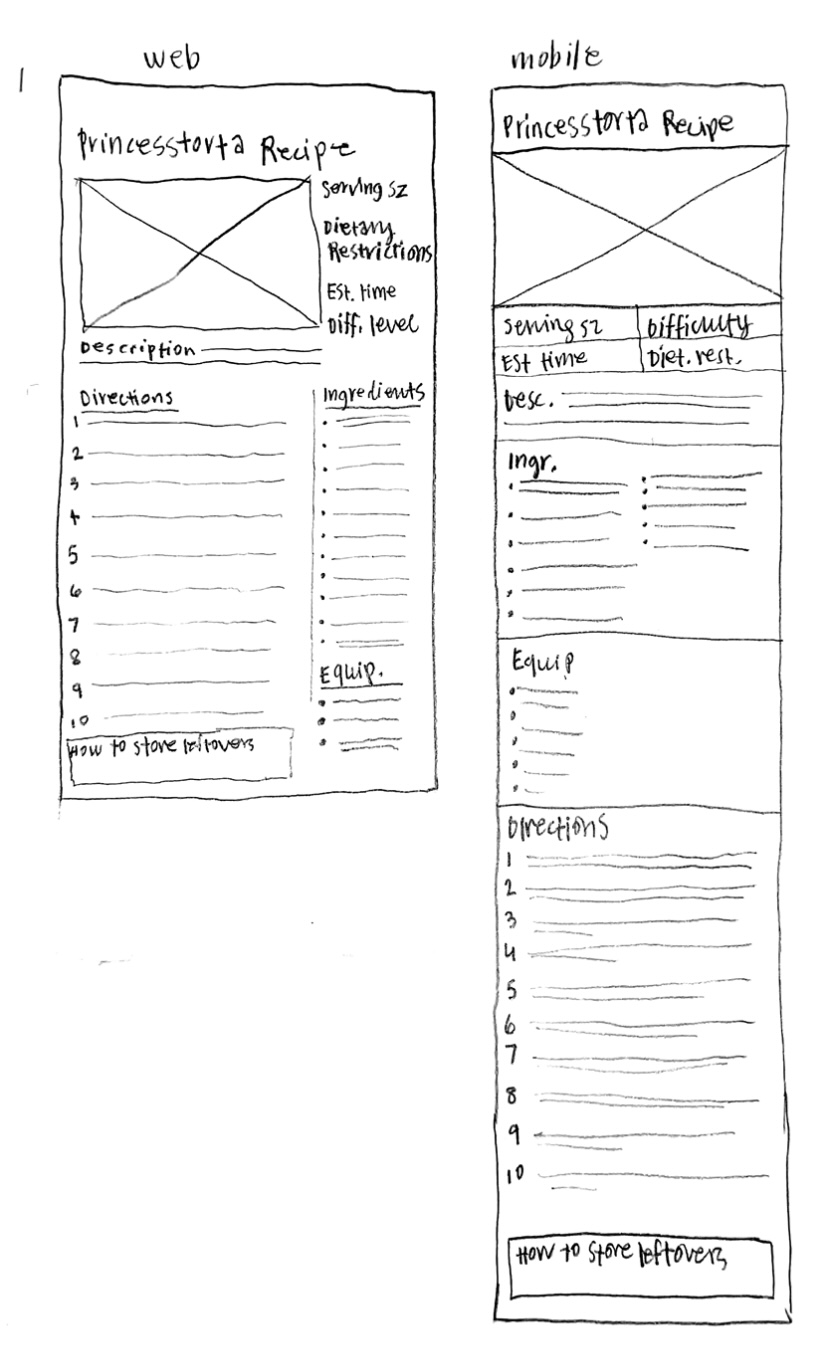 1
web
Princesstorta Recipe
Serving sz
Dietary
Restrictions
Est. time
Diff. level
Description
Directions
1
2
3
4
5
6
7
8
9
10
How to store leftovers
Ingredients
Equip.
mobile
Princesstorta Recipe
Serving sz
Difficulty
Est time
Diet. rest.
Desc.
Ingr.
Equip
Directions
1
2
3
4
5
6
7
8
9
10
How to store leftovers